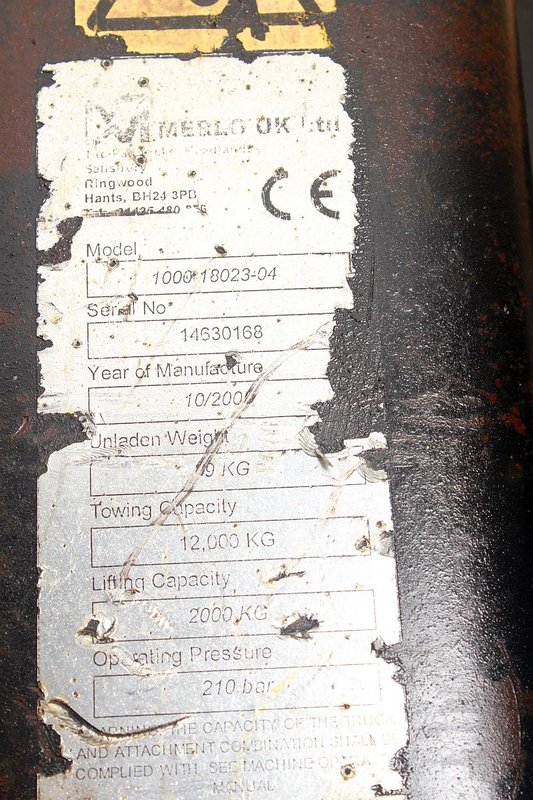 MERLO UK Ltd
Salisbury
Ringwood
Hants, BH24 3PB
CE
Model
1000-18023-04
Serial No
14630168
Year of Manufacture
Unladen Weight
KG
Towing Capacity
12,000 KG
Lifting Capacity
2000 KG
Operating Pressure
210 bar
WARNING: THE CAPACITY OF THE TRUCK
AND ATTACHMENT COMBINATION SHALL BE
COMPLIED WITH, SEE MACHINE
MANUAL